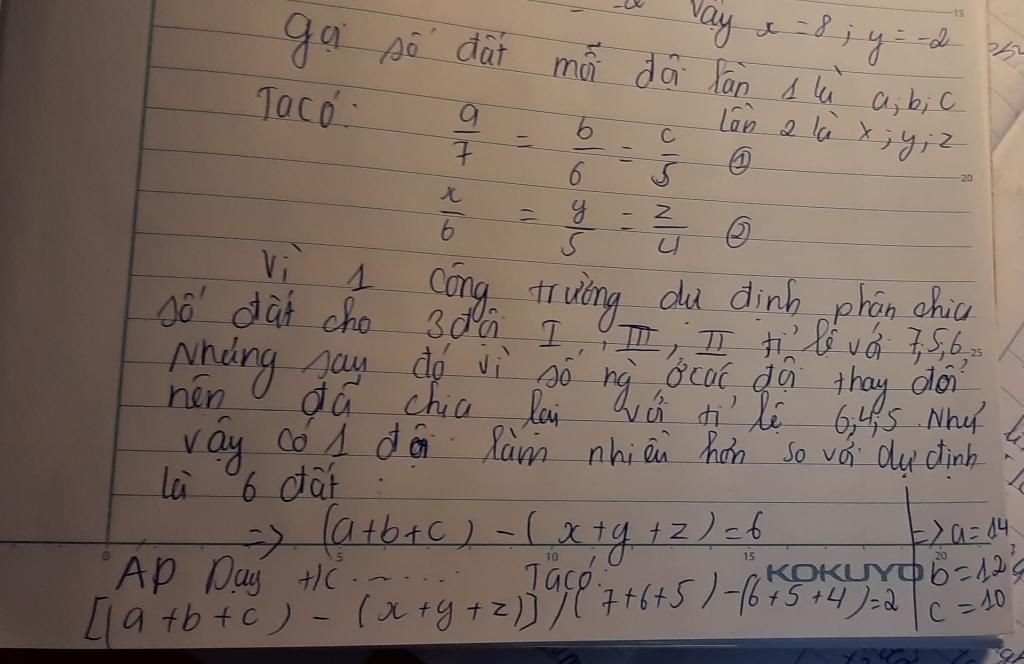 Vậy x = 8 ; y = -2
Gọi số đất mỗi đội lần 1 là a; b; c
lần 2 là x; y; z
Ta có: a/7 = b/6 = c/5 ①
x/6 = y/5 = z/4 ②
Vì 1 công trường dự định phân chia
số đất cho 3 đội I, III, II tỉ lệ với 7, 5, 6
Nhưng sau đó vì số ng ở các đội thay đổi
nên đã chia lại với tỉ lệ 6, 4, 5. Như
vậy có 1 đội làm nhiều hơn so với dự định
là 6 đất
=> (a+b+c) - (x+y+z) = 6
=> a = 14
Áp Dụng t/c ....... Ta có:
KOKUYO
b = 12
[(a+b+c) - (x+y+z)] / (7+6+5) - (6+5+4) = 2
c = 10
0 5 10 15 20
15
20
25